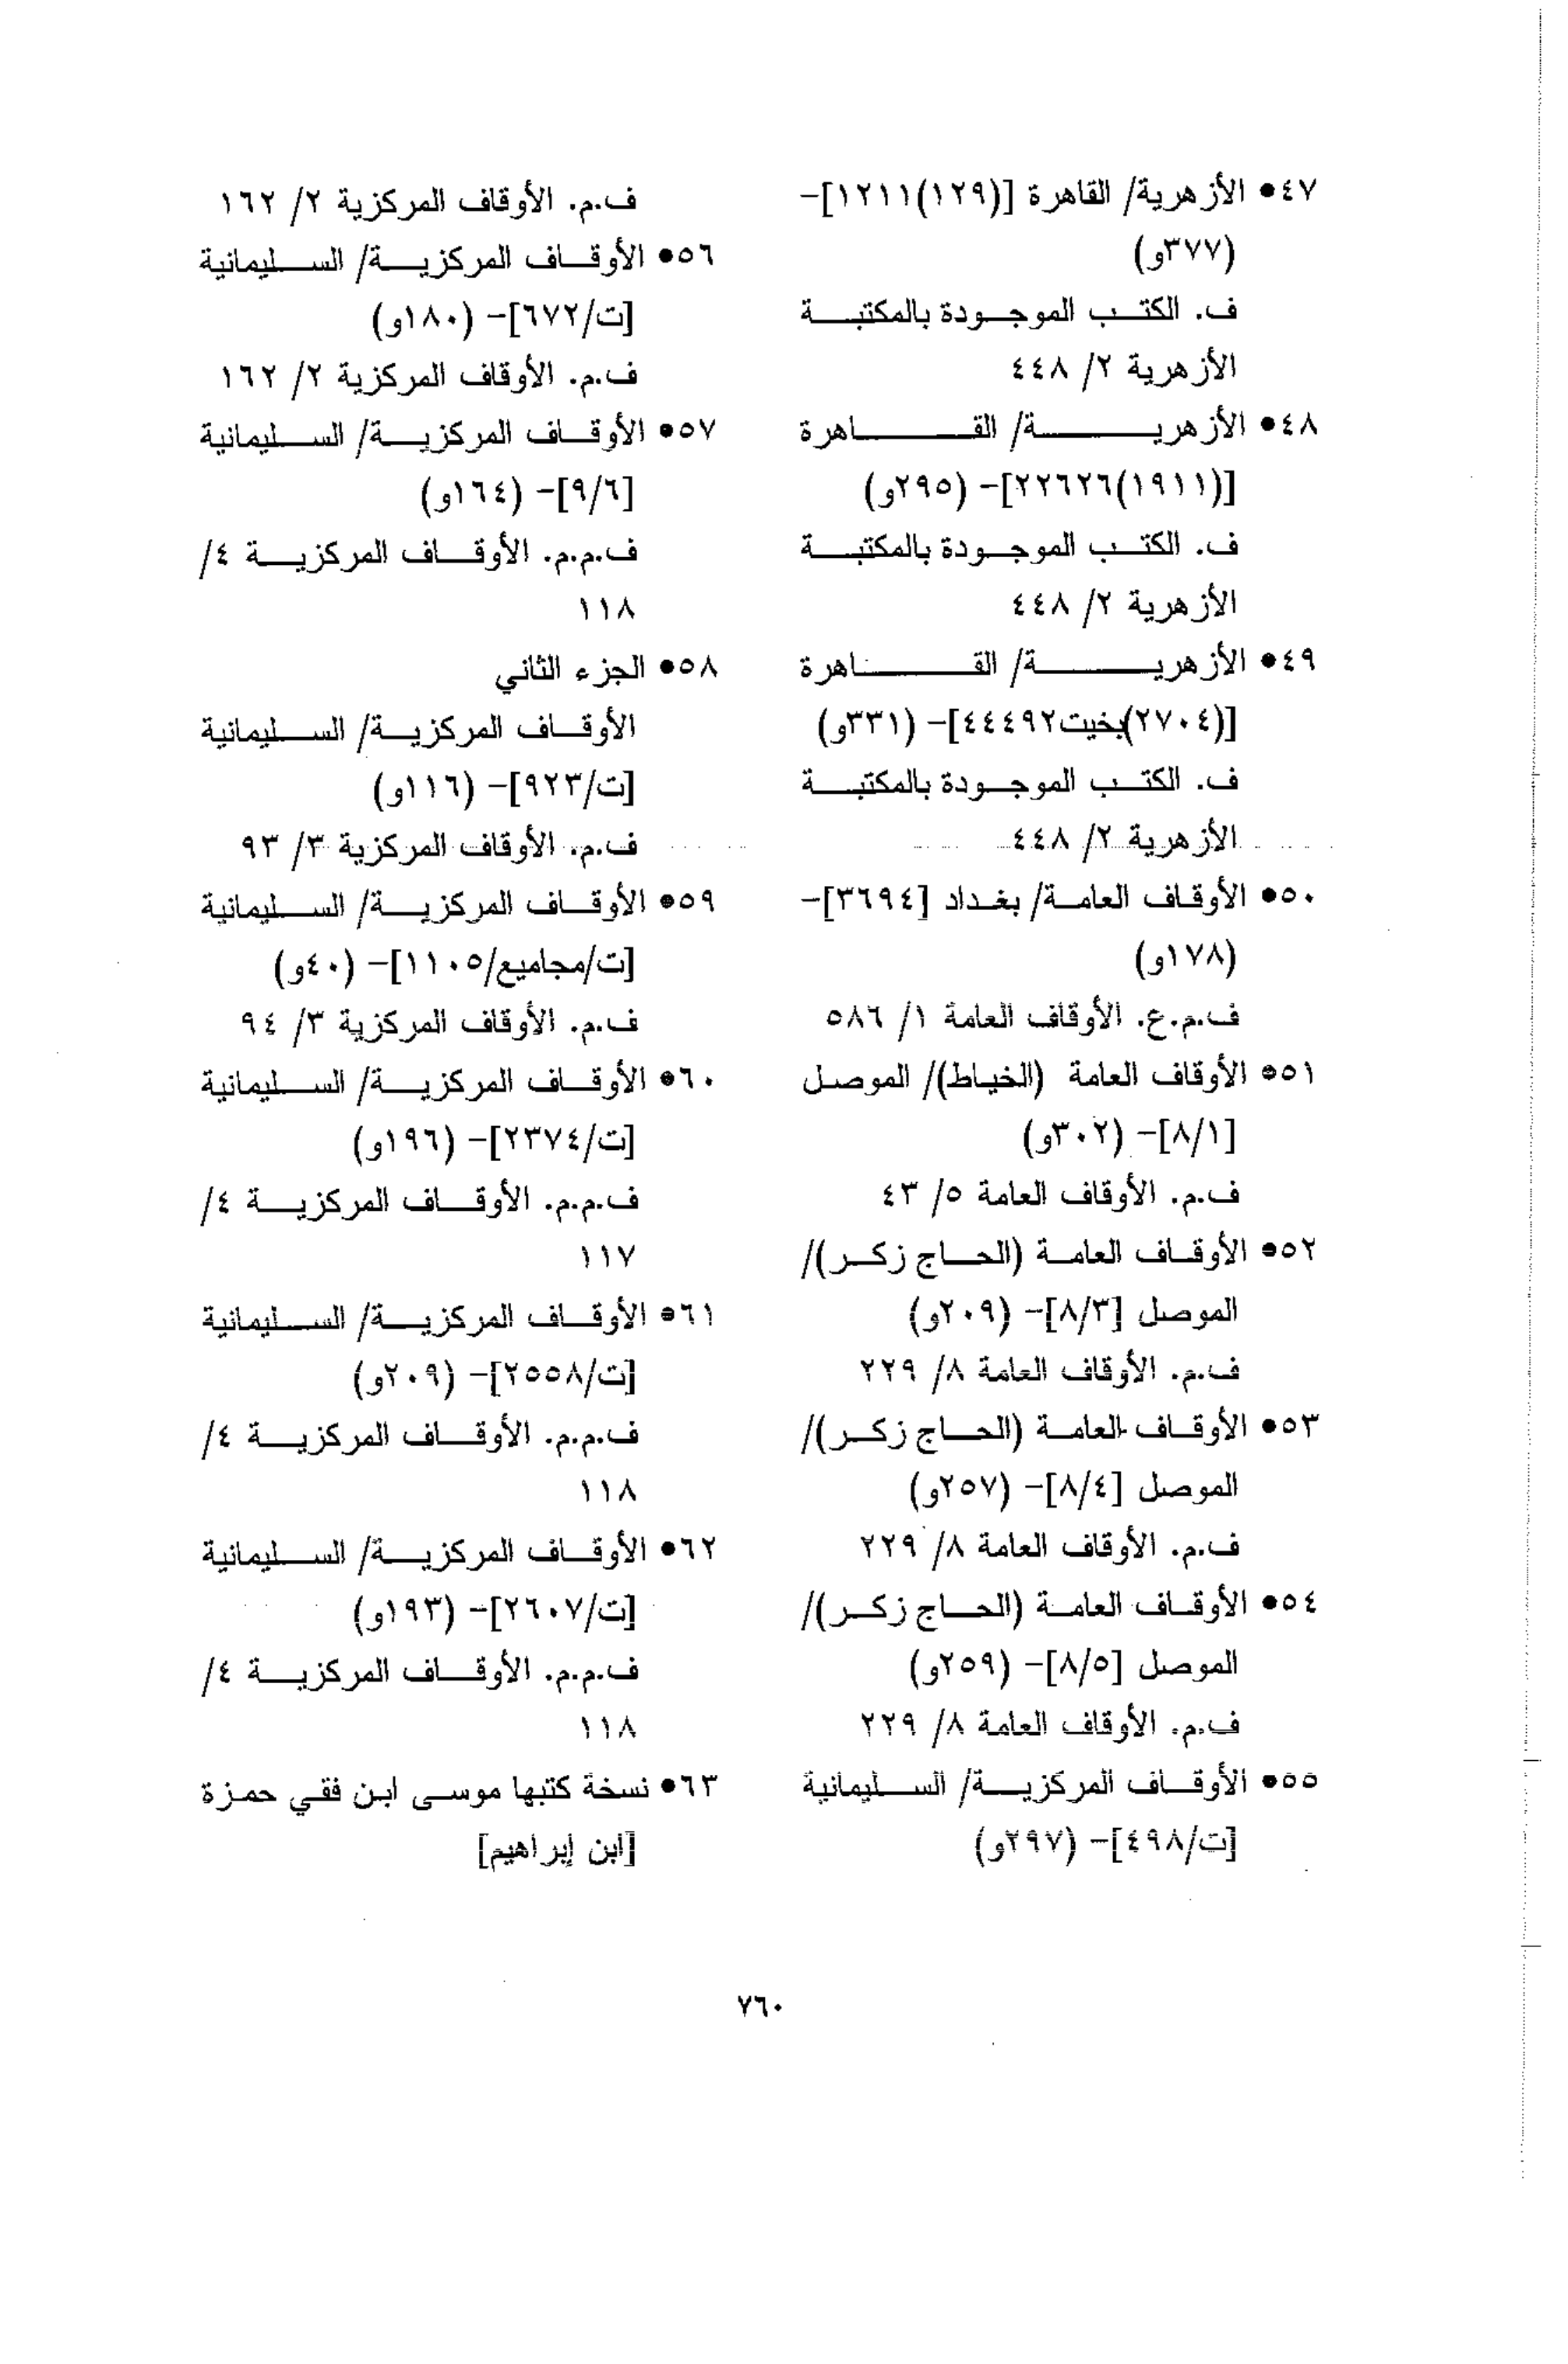 ٤٧• الأزهرية/ القاهرة [(١٢٩)١٢١١]-
(٣٧٧و)
ف. الكتب الموجودة بالمكتبة
الأزهرية ٢/ ٤٤٨
٤٨• الأزهرية/ القاهرة
[(١٩١١)٢٢٦٢٦]- (٢٩٥و)
ف. الكتب الموجودة بالمكتبة
الأزهرية ٢/ ٤٤٨
٤٩• الأزهرية/ القاهرة
[(٢٧٠٤)بخيت٤٤٤٩٢]- (٣٣١و)
ف. الكتب الموجودة بالمكتبة
الأزهرية ٢/ ٤٤٨
٥٠• الأوقاف العامة/ بغداد [٣٦٩٤]-
(١٧٨و)
ف.م.ع. الأوقاف العامة ١/ ٥٨٦
٥١• الأوقاف العامة (الخياط)/ الموصل
[٨/١]- (٣٠٢و)
ف.م. الأوقاف العامة ٥/ ٤٣
٥٢• الأوقاف العامة (الحاج زكر)/
الموصل [٨/٣]- (٢٠٩و)
ف.م. الأوقاف العامة ٨/ ٢٢٩
٥٣• الأوقاف العامة (الحاج زكر)/
الموصل [٨/٤]- (٢٥٧و)
ف.م. الأوقاف العامة ٨/ ٢٢٩
٥٤• الأوقاف العامة (الحاج زكر)/
الموصل [٨/٥]- (٢٥٩و)
ف.م. الأوقاف العامة ٨/ ٢٢٩
٥٥• الأوقاف المركزية/ السليمانية
[ت/٤٩٨]- (٢٩٧و)
ف.م. الأوقاف المركزية ٢/ ١٦٢
٥٦• الأوقاف المركزية/ السليمانية
[ت/٦٧٢]- (١٨٠و)
ف.م. الأوقاف المركزية ٢/ ١٦٢
٥٧• الأوقاف المركزية/ السليمانية
[٩/٦]- (١٦٤و)
ف.م.م. الأوقاف المركزية ٤/
١١٨
٥٨• الجزء الثاني
الأوقاف المركزية/ السليمانية
[ت/٩٢٣]- (١١٦و)
ف.م. الأوقاف المركزية ٣/ ٩٣
٥٩• الأوقاف المركزية/ السليمانية
[ت/مجاميع/١١٠٥]- (٤٠و)
ف.م. الأوقاف المركزية ٣/ ٩٤
٦٠• الأوقاف المركزية/ السليمانية
[ت/٢٣٧٤]- (١٩٦و)
ف.م.م. الأوقاف المركزية ٤/
١١٧
٦١• الأوقاف المركزية/ السليمانية
[ت/٢٥٥٨]- (٢٠٩و)
ف.م.م. الأوقاف المركزية ٤/
١١٨
٦٢• الأوقاف المركزية/ السليمانية
[ت/٢٦٠٧]- (١٩٣و)
ف.م.م. الأوقاف المركزية ٤/
١١٨
٦٣• نسخة كتبها موسى ابن فقي حمزة
[ابن إبراهيم]
٧٦٠